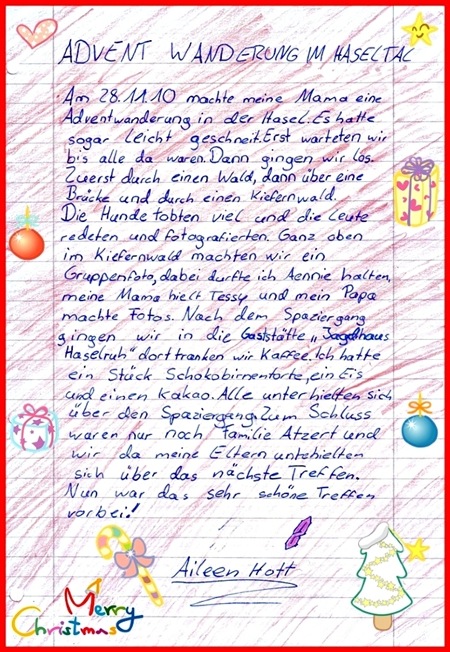 ADVENT WANDERUNG IM HASELTAL
Am 28.11.10 machte meine Mama eine
Adventwanderung in der Hasel. Es hatte
sogar leicht geschneit. Erst warteten wir
bis alle da waren. Dann gingen wir los.
Zuerst durch einen Wald, dann über eine
Brücke und durch einen Kiefernwald.
Die Hunde tobten viel und die Leute
redeten und fotografierten. Ganz oben
im Kiefernwald machten wir ein
Gruppenfoto, dabei durfte ich Aennie halten,
meine Mama hielt Tessy und mein Papa
machte Fotos. Nach dem Spaziergang
gingen wir in die Gaststätte „Jagdhaus
Haselruh" dort tranken wir Kaffee. Ich hatte
ein Stück Schokobirnentorte, ein Eis
und einen Kakao. Alle unterhielten sich
über den Spaziergang. Zum Schluss
waren nur noch Familie Atzert und
wir da meine Eltern untehielten
sich über das nächste Treffen.
Nun war das sehr schöne Treffen
vorbei!
Aileen Hott
Merry
Christmas